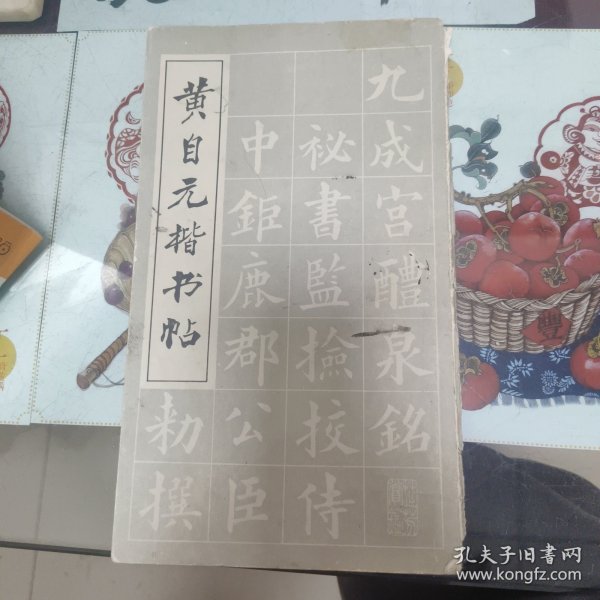 黄自元楷书帖
九成宫醴泉銘
祕書監撿挍侍
中鉅鹿郡公臣
勑撰
豐
孔夫子旧书网
www.kongfz.com